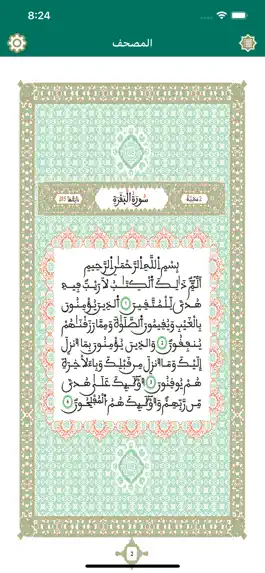 8:24
المصحف
2 مَدَنِيَّة
سُورَةُ الْبَقَرَةِ
ءَايَاتُهَا 285
بِسْمِ اِ۬للَّهِ اِ۬لرَّحْمَٰنِ اِ۬لرَّحِيمِ
أَلَٓمِّٓ ذَٰلِكَ اَ۬لْكِتَٰبُ لَا رَيْبَ فِيهِ
هُدىٗ لِّلْمُتَّقِينَ 1 اَ۬لذِينَ يُومِنُونَ
بِالْغَيْبِ وَيُقِيمُونَ اَ۬لصَّلَوٰةَ وَمِمَّا رَزَقْنَٰهُمْ
يُنفِقُونَ 2 وَالذِينَ يُومِنُونَ بِمَآ أُنزِلَ
إِلَيْكَ وَمَآ أُنزِلَ مِن قَبْلِكَ وَبِالَاخِرَةِ
هُمْ يُوقِنُونَ 3 أُوْلَٰٓئِكَ عَلَىٰ هُدىٗ
مِّن رَّبِّهِمْ وَأُوْلَٰٓئِكَ هُمُ اُ۬لْمُفْلِحُونَ 4
2